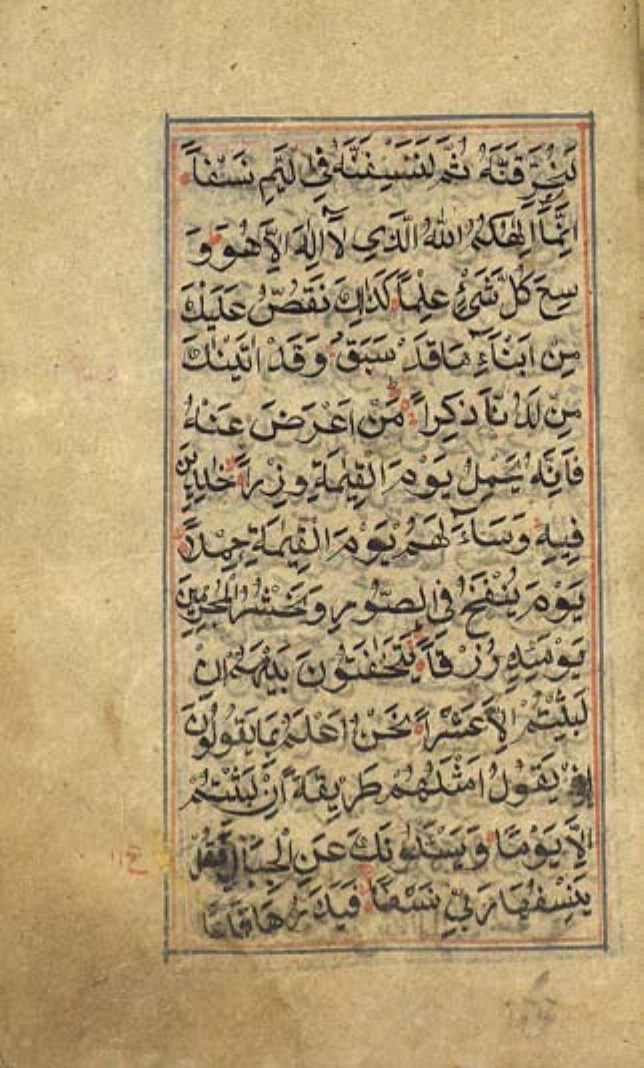 لَنُحَرِّقَنَّهُ ثُمَّ لَنَنْسِفَنَّهُ فِي الْيَمِّ نَسْفًا
اِنَّمَا اِلٰهُكُمُ اللّٰهُ الَّذِي لَا اِلٰهَ اِلَّا هُوَ وَ
سِعَ كُلَّ شَيْءٍ عِلْمًا كَذٰلِكَ نَقُصُّ عَلَيْكَ
مِنْ اَنْبَاءِ مَا قَدْ سَبَقَ وَقَدْ اٰتَيْنٰكَ
مِنْ لَدُنَّا ذِكْرًا مَنْ اَعْرَضَ عَنْهُ
فَاِنَّهُ يَحْمِلُ يَوْمَ الْقِيٰمَةِ وِزْرًا خٰلِدِينَ
فِيهِ وَسَاءَ لَهُمْ يَوْمَ الْقِيٰمَةِ حِمْلًا
يَوْمَ يُنْفَخُ فِي الصُّورِ وَنَحْشُرُ الْمُجْرِمِينَ
يَوْمَئِذٍ زُرْقًا يَتَخَافَتُونَ بَيْنَهُمْ اِنْ
لَبِثْتُمْ اِلَّا عَشْرًا نَحْنُ اَعْلَمُ بِمَا يَقُولُونَ
اِذْ يَقُولُ اَمْثَلُهُمْ طَرِيقَةً اِنْ لَبِثْتُمْ
اِلَّا يَوْمًا وَيَسْـَٔلُونَكَ عَنِ الْجِبَالِ فَقُلْ
يَنْسِفُهَا رَبِّي نَسْفًا فَيَذَرُهَا قَاعًا